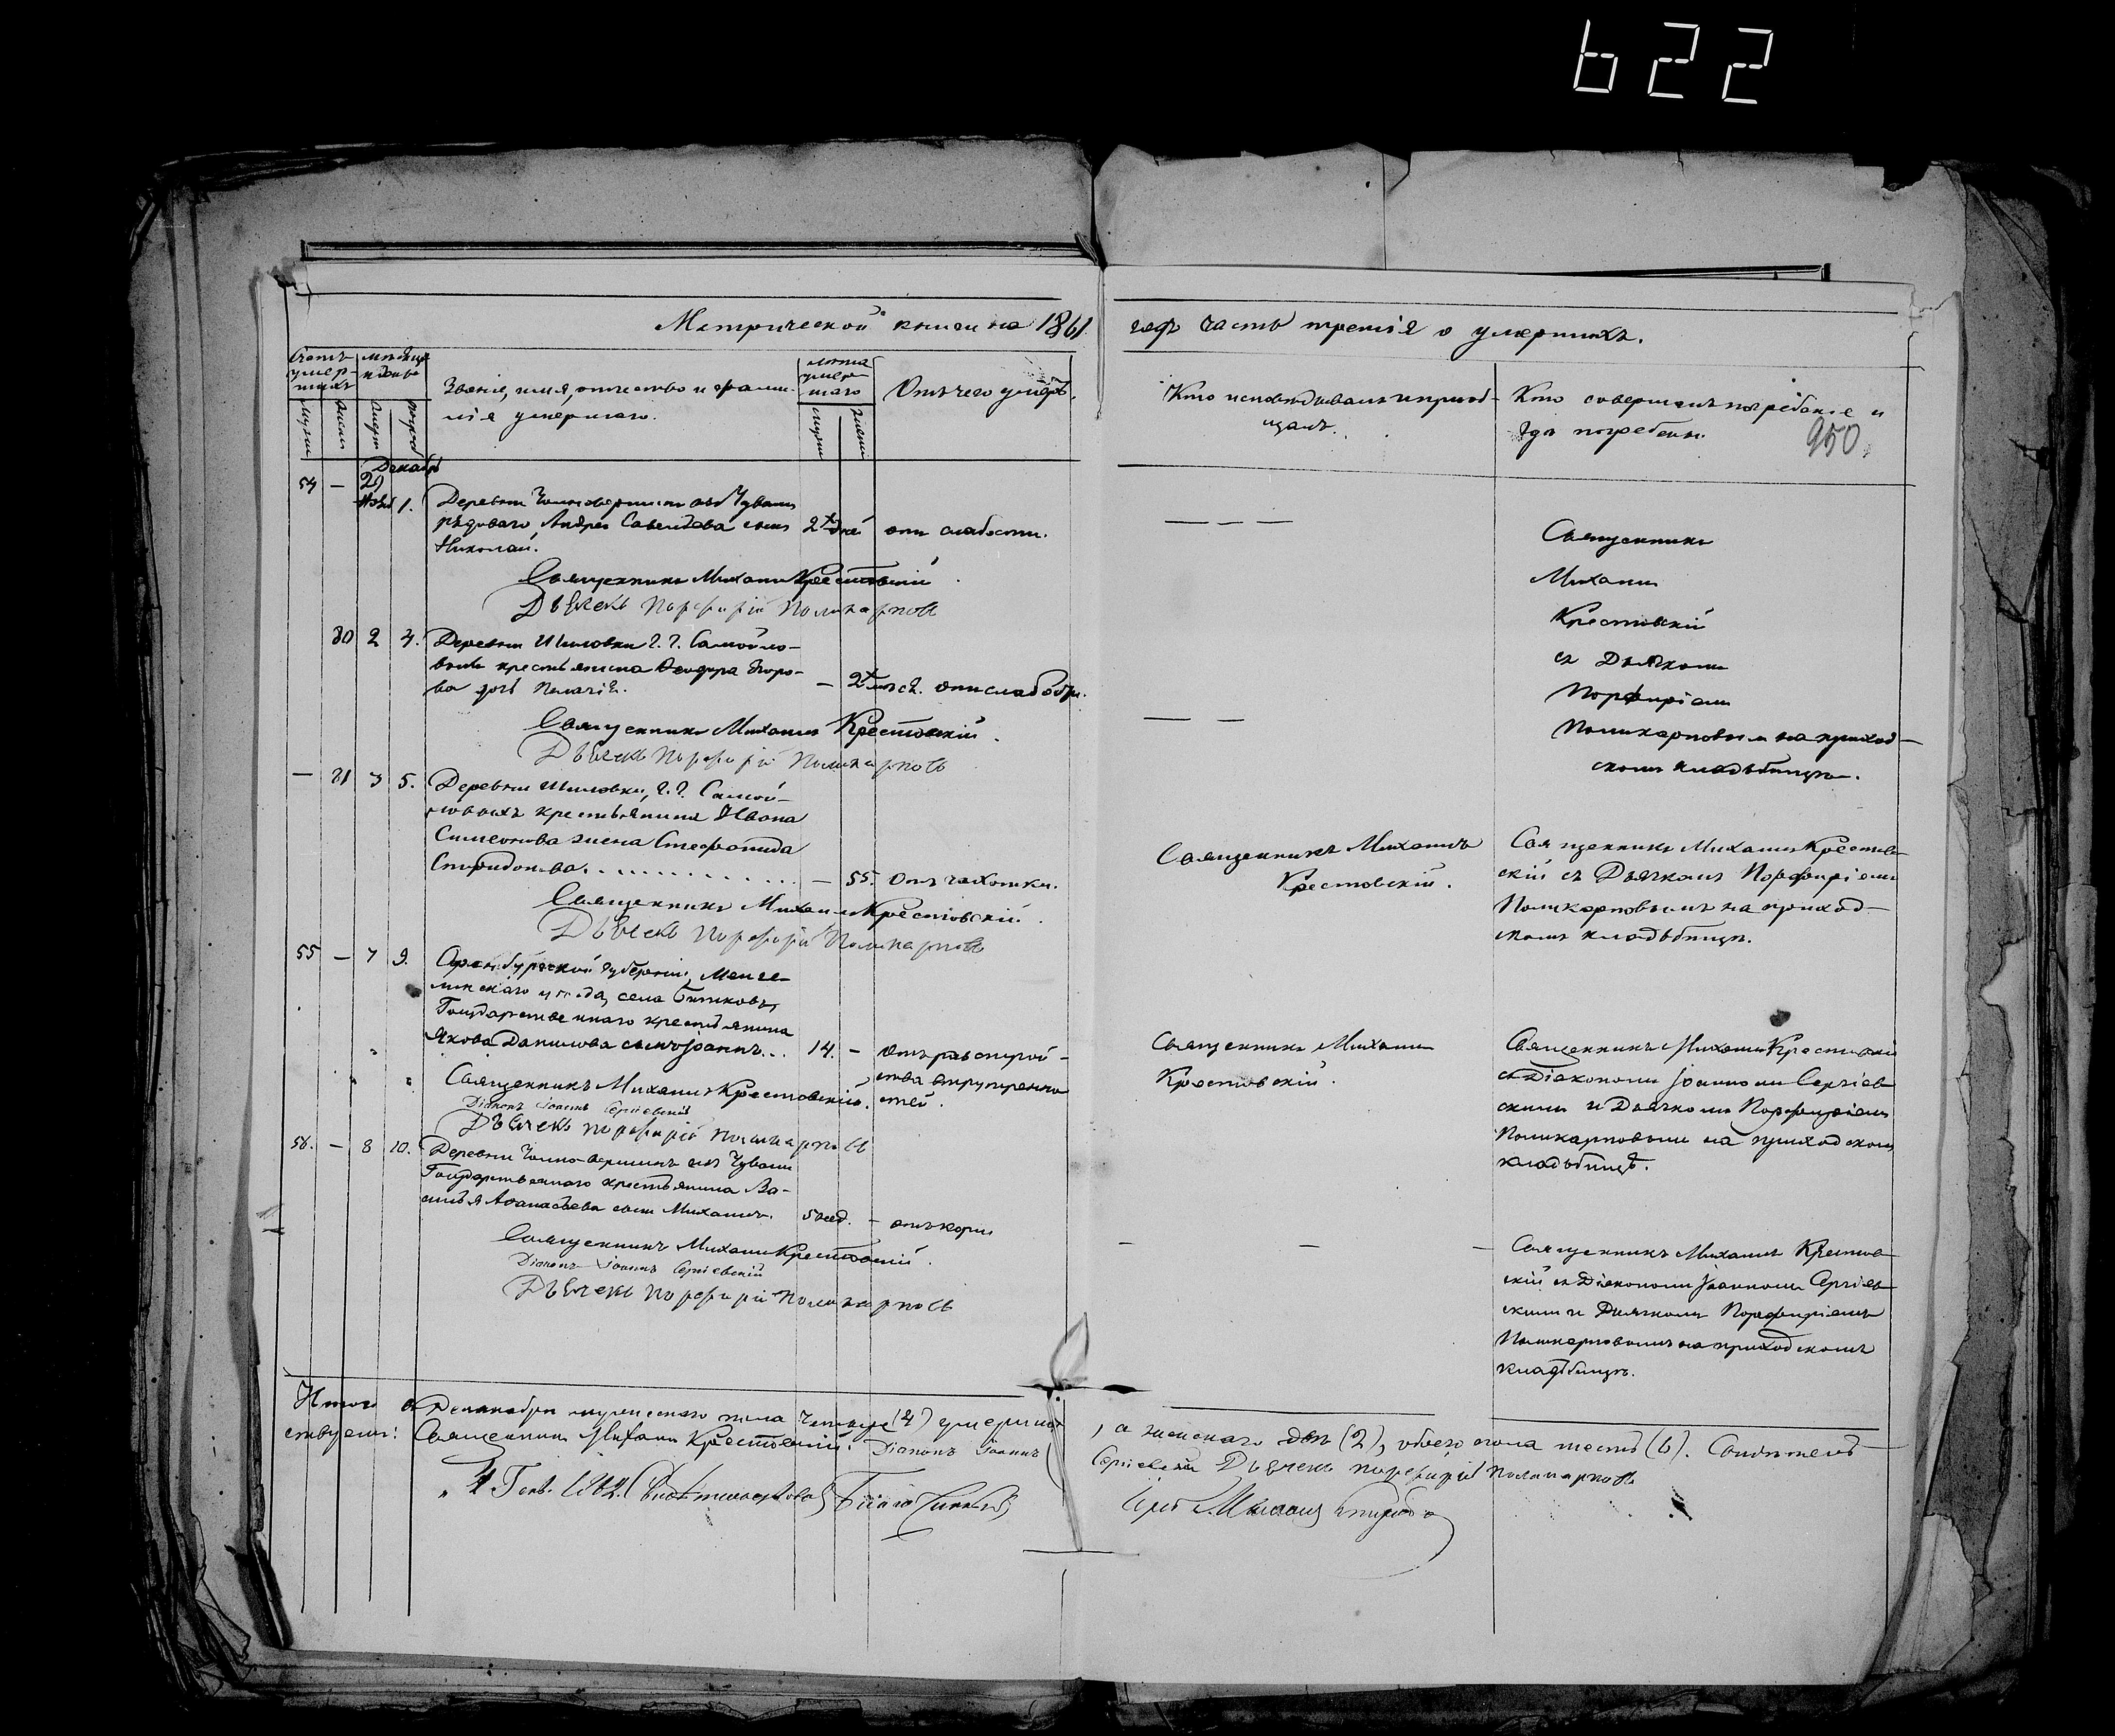 622
Метрической книги на 1861 годъ часть третія о умершихъ.
950
Счетъ умершихъ
мужск
женск
Мѣсяцъ и день
смерт
погреб
Званіе, имя, отчество и фамилія умершаго.
Лѣта умершаго
мужск
женск
Отъ чего умеръ.
Кто исповѣдывалъ и пріобщалъ.
Кто совершалъ погребеніе и гдѣ погребены.
Декабрь
54 — 29 Нояб 1. Деревни
Андрея Савельева сынъ 2хъ дней отъ слабости.
Николай.
Священникъ Михаилъ Крестовскій.
Дьячекъ Порфирій Поликарповъ
— — —
Священникъ
Михаилъ
Крестовскій
съ Дьячкомъ
Порфиріемъ
Поликарповымъ на приход-
скомъ кладбищѣ.
80 2 4. Деревни Шиловки Г. Г. Самойло-
выхъ крестьянина Ѳеодора Егоро-
ва дочь Пелагія. — 2хъ мѣс. отъ слабости.
Священникъ Михаилъ Крестовскій.
Дьячекъ Порфирій Поликарповъ
— —
— 81 3 5. Деревни Шиловки, Г. Г. Самой-
ловыхъ крестьянина Ивана
Симеонова жена Стефанида
Спиридонова. — 55. Отъ чахотки.
Священникъ Михаилъ Крестовскій.
Дьячекъ Порфирій Поликарповъ
Священникъ Михаилъ
Крестовскій.
Священникъ Михаилъ Крестов-
скій съ Дьячкомъ Порфиріемъ
Поликарповымъ на приход-
скомъ кладбищѣ.
55 — 7 9. Оренбургской Губерніи, Мензе-
линскаго уѣзда, села
Государственнаго крестьянина
Якова Данилова сынъ Іоаннъ... 14. — Отъ разстрой-
ства внутренно-
стей.
Священникъ Михаилъ Крестовскій.
Діаконъ Іоаннъ Сергіевскій
Дьячекъ Порфирій Поликарповъ
Священникъ Михаилъ
Крестовскій.
Священникъ Михаилъ Крестовскій
съ Діакономъ Іоанномъ Сергіев-
скимъ и Дьячкомъ Порфиріемъ
Поликарповымъ на приходскомъ
кладбищѣ.
56. — 8 10. Деревни изъ Чувашъ
Государственнаго крестьянина Ва-
силья Аѳанасьева сынъ Михаилъ. 5 нед. — отъ кори
Священникъ Михаилъ Крестовскій.
Діаконъ Іоаннъ Сергіевскій
Дьячекъ Порфирій Поликарповъ
— — —
Священникъ Михаилъ Крестов-
скій съ Діакономъ Іоанномъ Сергіев-
скимъ и Дьячкомъ Порфиріемъ
Поликарповымъ на приходскомъ
кладбищѣ.
Итого въ Декабрѣ мужескаго пола четыре (4) умершихъ, а женскаго двѣ (2), обоего пола шесть (6). Свидѣтель-
ствуемъ: Священникъ Михаилъ Крестовскій. Діаконъ Іоаннъ Сергіевскій Дьячекъ Порфирій Поликарповъ
Генв. 1862.